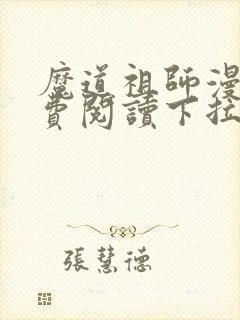 魔道祖師漫
費閱讀下拉
張慧德